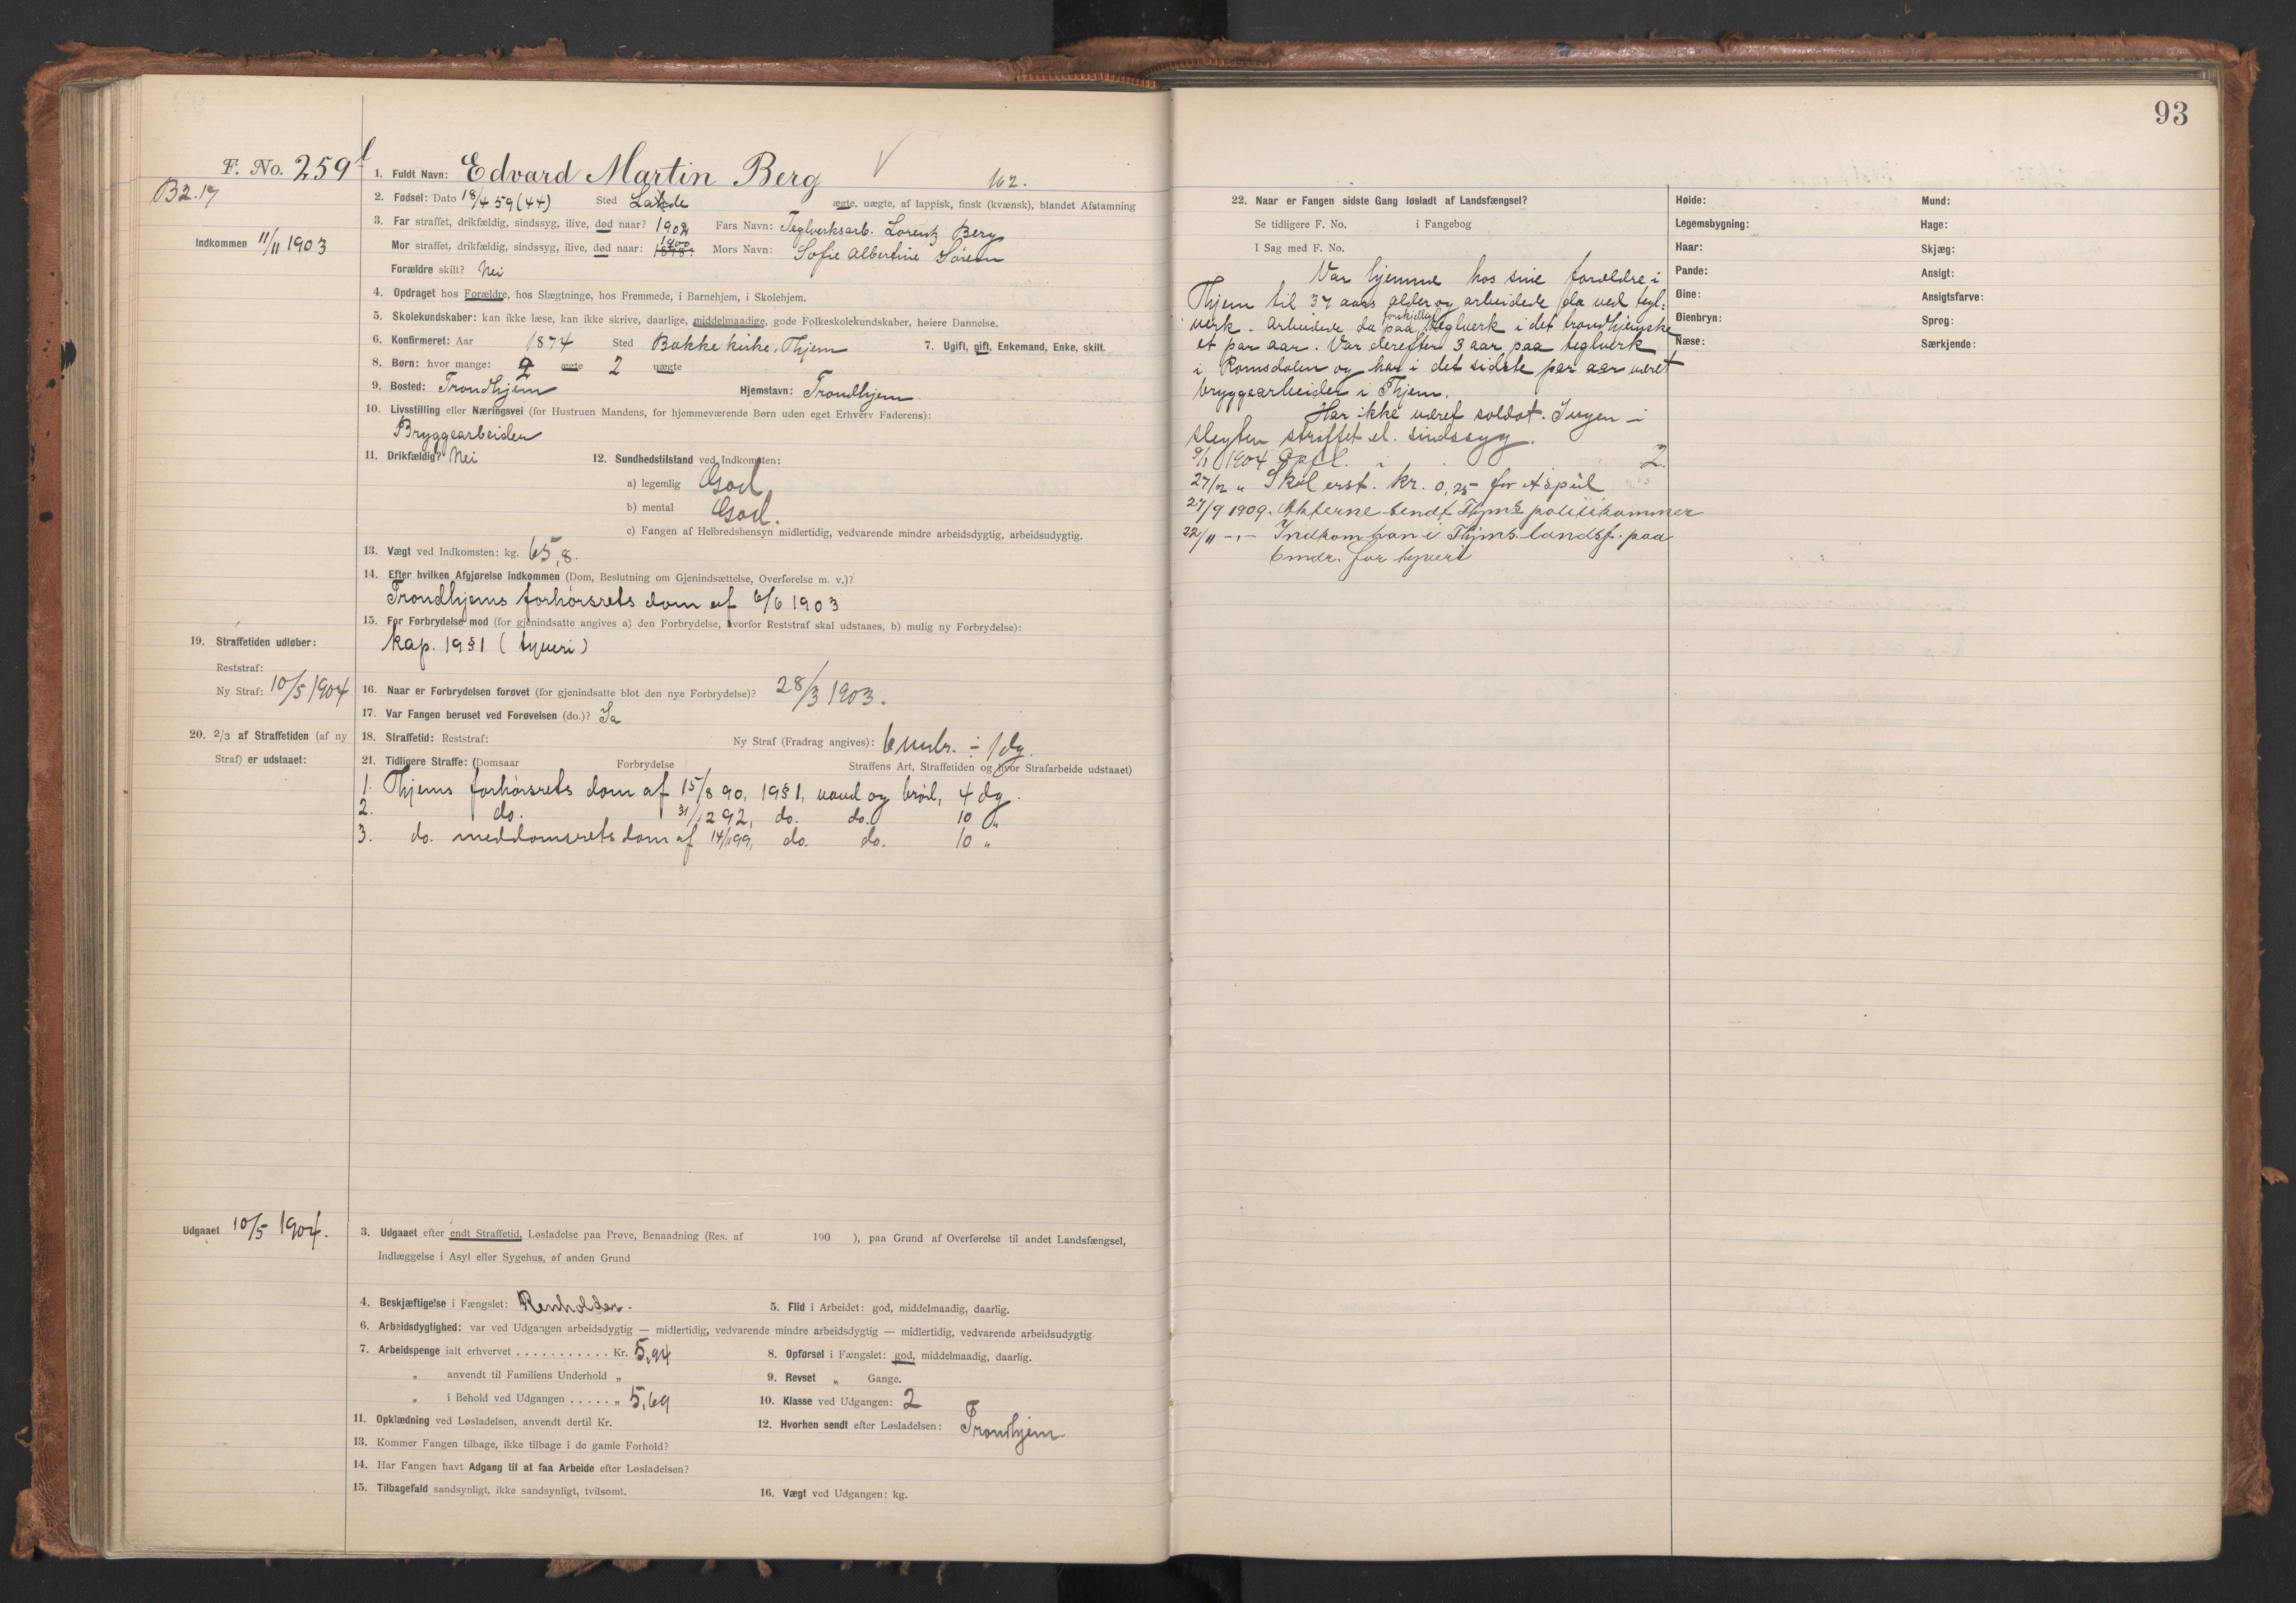 93
F. No. 259 f
B2.17
Indkommen 11/11 1903
1. Fuldt Navn: Edvard Martin Berg V 162.
2. Fødsel: Dato 18/4 59 (44) Sted Lade ægte, uægte, af lappisk, finsk (kvænsk), blandet Afstamning
3. Far straffet, drikfældig, sindssyg, ilive, død naar? 1902 Fars Navn: Teglverksarb. Lorentz Berg
Mor straffet, drikfældig, sindssyg, ilive, død naar: 1900 1898. Mors Navn: Sofie Albertine
Forældre skilt? Nei
4. Opdraget hos Forældre, hos Slægtninge, hos Fremmede, i Barnehjem, i Skolehjem.
5. Skolekundskaber: kan ikke læse, kan ikke skrive, daarlige, middelmaadige, gode Folkeskolekundskaber, høiere Dannelse.
6. Konfirmeret: Aar 1874 Sted Bakke kirke, Thjem 7. Ugift, gift, Enkemand, Enke, skilt.
8. Børn: hvor mange: 2 ægte 2 uægte
9. Bosted: Trondhjem Hjemstavn: Trondhjem
10. Livsstilling eller Næringsvei (for Hustruen Mandens, for hjemmeværende Børn uden eget Erhverv Faderens):
Bryggearbeider
11. Drikfældig? Nei 12. Sundhedstilstand ved Indkomsten:
a) legemlig God
b) mental God.
c) Fangen af Helbredshensyn midlertidig, vedvarende mindre arbeidsdygtig, arbeidsudygtig.
13. Vægt ved Indkomsten: kg. 65,8.
14. Efter hvilken Afgjørelse indkommen (Dom, Beslutning om Gjenindsættelse, Overførelse m. v.)?
Trondhjems forhørsrets dom af 6/6 1903
15. For Forbrydelse mod (for gjenindsatte angives a) den Forbrydelse, hvorfor Reststraf skal udstaaes, b) mulig ny Forbrydelse):
Kap. 19 § 1 (tyveri)
19. Straffetiden udløber:
Reststraf:
Ny Straf: 10/5 1904
16. Naar er Forbrydelsen forøvet (for gjenindsatte blot den nye Forbrydelse)? 28/3 1903.
17. Var Fangen beruset ved Forøvelsen (do.)? Ja
20. 2/3 af Straffetiden (af ny
Straf) er udstaaet:
18. Straffetid: Reststraf: Ny Straf (Fradrag angives): 6 mdr. ÷ 1 dg.
21. Tidligere Straffe: (Domsaar Forbrydelse Straffens Art, Straffetiden og hvor Strafarbeide udstaaet)
1. Thjems forhørsrets dom af 15/8 90, 19 § 1, vand og brød, 4 dg.
2. do. 31/12 92, do. do. 10 "
3. do. meddomsrets dom af 14/11 99, do. do. 10 "
Udgaaet 10/5 1904.
3. Udgaaet efter endt Straffetid, Løsladelse paa Prøve, Benaadning (Res. af 190 ), paa Grund af Overførelse til andet Landsfængsel,
Indlæggelse i Asyl eller Sygehus, af anden Grund
4. Beskjæftigelse i Fængslet: Renholder. 5. Flid i Arbeidet: god, middelmaadig, daarlig.
6. Arbeidsdygtighed: var ved Udgangen arbeidsdygtig — midlertidig, vedvarende mindre arbeidsdygtig — midlertidig, vedvarende arbeidsudygtig.
7. Arbeidspenge ialt erhvervet . . . . . . . . . . . Kr. 5,94 8. Opførsel i Fængslet: god, middelmaadig, daarlig.
" anvendt til Familiens Underhold " 9. Revset " Gange.
" i Behold ved Udgangen . . . . . " 5,69 10. Klasse ved Udgangen: 2
11. Opklædning ved Løsladelsen, anvendt dertil Kr. 12. Hvorhen sendt efter Løsladelsen: Trondhjem
13. Kommer Fangen tilbage, ikke tilbage i de gamle Forhold?
14. Har Fangen havt Adgang til at faa Arbeide efter Løsladelsen?
15. Tilbagefald sandsynligt, ikke sandsynligt, tvilsomt. 16. Vægt ved Udgangen: kg.
22. Naar er Fangen sidste Gang løsladt af Landsfængsel?
Se tidligere F. No. i Fangebog
I Sag med F. No.
Var hjemme hos sine forældre i
Thjem til 37 aars alder og arbeidede da ved tegl-
verk. Arbeidede da paa forskjellige teglverk i det trondhjemske
et par aar. Var derefter 3 aar paa teglverk
i Romsdalen og har i det sidste par aar været
bryggearbeider i Thjem.
Har ikke været soldat. Ingen i
slegten straffet el. sindssyg.
9/1 1904 Opfl. i 2.
27/2 " Skol erst. kr. 0,25 for
27/9 1909. Akterne sendt Thjms politikammer
22/11 -"- Indkom han i Thjms landsf. paa
6 mdr. for tyveri
Høide:
Legemsbygning:
Haar:
Pande:
Øine:
Øienbryn:
Næse:
Mund:
Hage:
Skjæg:
Ansigt:
Ansigtsfarve:
Sprog:
Særkjende: